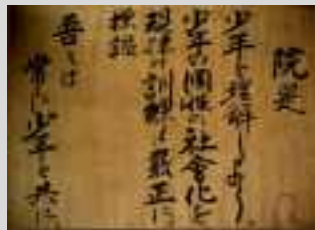 院是
少年を理解しよう。
少年の個性の社会化を
規律は訓練は厳正に
操鑑
吾々は
常に少年と共に